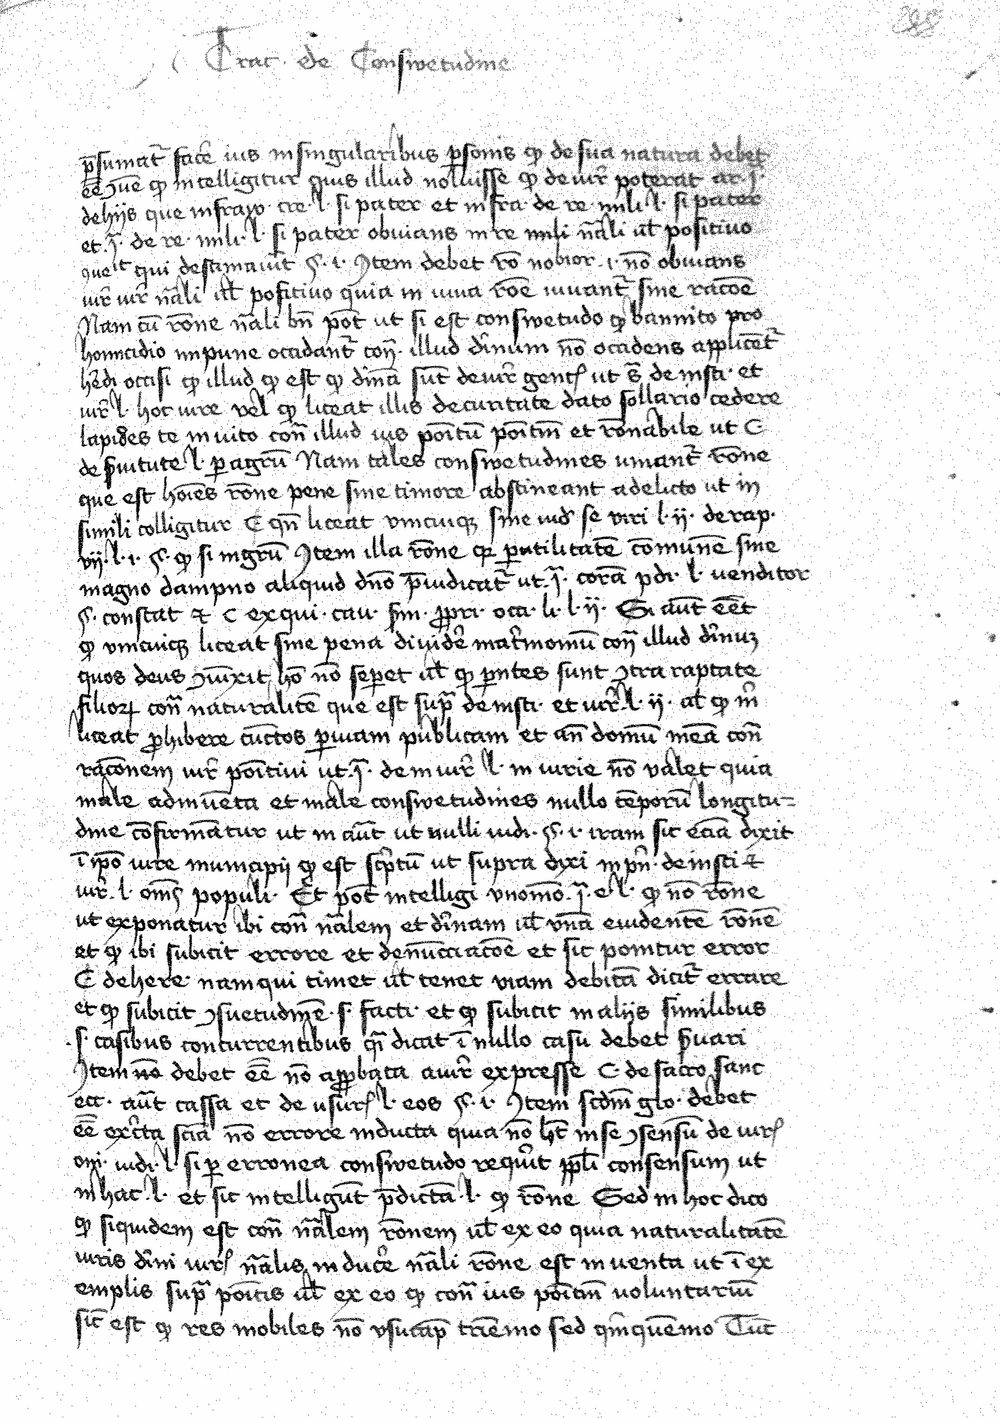 Trac. de Conswetudine
p̄sumat᷑ facē ius in singularibus p̱sonis qꝫ de sua natura debet
eē ꝯne qꝫ intelligitur quis illud noluisse qꝫ de iur̄ poterat ar. s.
de hijs que infra cre. l. si pater et infra de re. mili l. si pater
et .j̄. de re. mili. l. si pater obuians in re mili n̄ali ul̄ positiuo
qui destinauit §. i. Item debet rō nobior .i. nō obuians
iur̄ iur̄ n̄ali ul̄ positiuo quia in iura rōe iuuant᷑ sine racōe
Nam cū rōne n̄ali bn̄ pōt ut si est conswetudo qꝫ bannito pro
homicidio impune occidant᷑ con̄. illud diīnum nō occidens applicet᷑
hēdi occisi qꝫ illud qꝫ est qꝫ diīna sūt de iur̄ gent ut s̄ de insti. et
iur̄ l. hoc iure vel qꝫ liceat illis decuritate dato sollario cedere
lapides te in uito con̄ illud ius poītū poītm et rōnabile ut C
de s̱uitute l. p̱ agrū Nam tales conswetudines iuuant᷑ rōne
que est hoīes rōne pene sine timore abstineant a delicto ut in
simili colligitur C qn̄ liceat vnicuiqꝫ sine iud se viri l. ij. de rap.
vij. l. i. §. qꝫ si ingrū Item illa rōne qꝫ p̱ utilitatē cōmunē sine
magno dampno aliquid dn̄o p̄iudicat᷑ ut .j̄. corā pdi. l. venditor
§. constat ⁊ C ex qui. cau. s̱m. ꝓpri. occi. li. l. ij. Si aūt eēt
qꝫ vnicuiqꝫ liceat sine pena diuider̄ matr̄imoniū con̄ illud diīnuꝫ
quos deus ꝯiūxit hō nō sepet ul̄ qꝫ p̱ntes sunt ꝯtra raptate
filioꝝ con̄ naturalitē que est sup̄ de insti. et iur̄. l. ij. al̄ qꝫ m̄
liceat ꝓhibere cūctos p̱ uiam publicam et an̄ domū meā con̄
racōnem iur̄ poītiui ut .j̄. de in iur̄ l. in iurie nō valet quia
male adinuēta et male conswetudines nullo tēporū longitu=
dine cōfirmātur ut in aūt ut nulli iudi. §. i. iram sic eciā dixit
ī ip̄o iure municipij qꝫ est sc̄ptū ut supra dixi in pn̄. de insti ⁊
iur̄. l. om̄s populi. Et pōt intelligi vnomō .j̄. e l. qꝫ nō rōne
ut exponatur ibi con̄ n̄alem et diīnam ul̄ vnā euidentē rōnē
et qꝫ ibi subicit errore et denūciacōe et sic ponitur error
C de here. nam qui timet ul̄ tenet viam debitā dicit᷑ errare
et qꝫ subicit ꝯsuetudinē. s. facti. et qꝫ subicit in alijs similibus
.s. casibus concurrentibus q̄i dicat ī nullo casu debet s̱uari
Item nō debet eē nō app̱bata a iur̄ expresse C de sacro sanc
ecc. aūt cassa et de usur l. eos §. i. Item scdm̄ glo. debet
eē exc̄ta sciā nō errore inducta quia nō h̄t in se ꝯsensū de iur
om. iudi. l. si p̱ erronea conswetudo requīt ppl̄i consensum ut
in hac. l. et sic intelligūt p̄dictā l. qꝫ rōne Sed in hoc dico
qꝫ siquidem est con̄ n̄alem rōnem ul̄ ex eo quia naturalitatē
iuris diīni iur n̄alis inducē n̄ali rōne est inuenta ut ī ex
emplis sup̄ poītis ul̄ ex eo qꝫ con̄ ius poītm voluntariū
sic̄ est qꝫ res mobiles nō vsucap̄ triēnio sed qīnquēnio Tūc